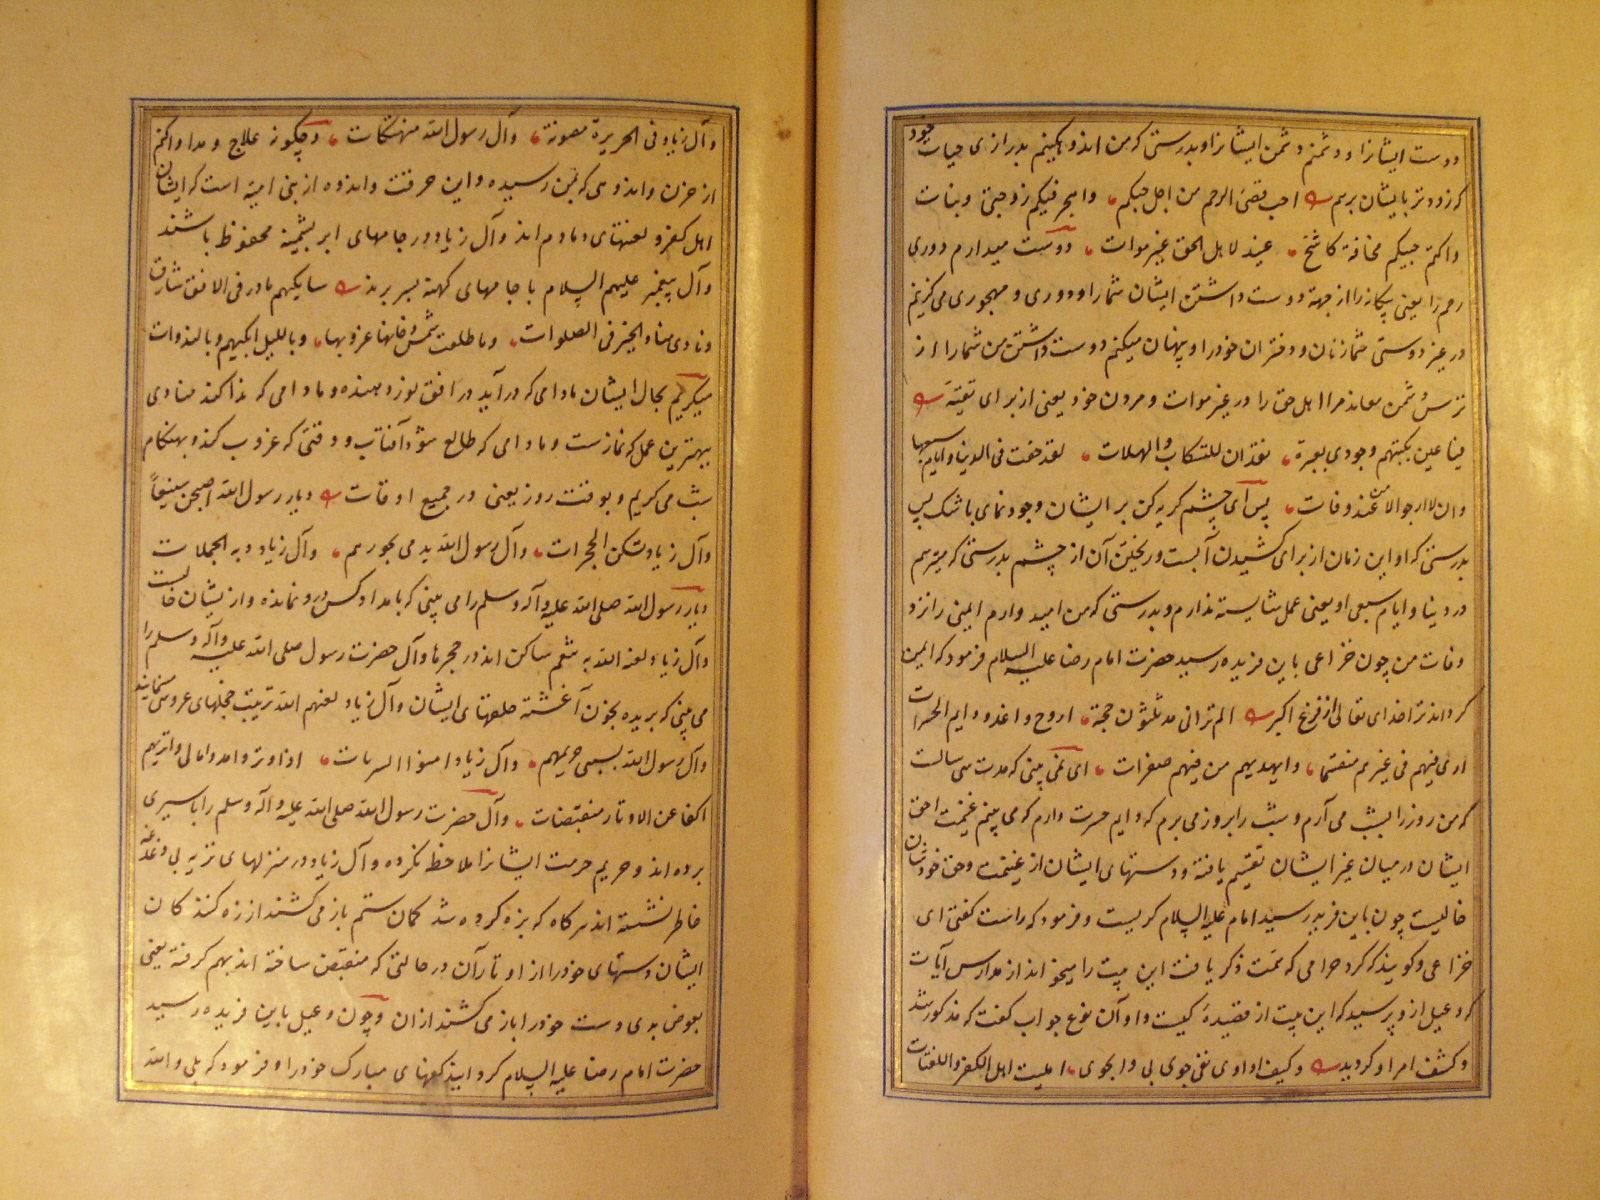 دوست ایشانرا و دشمنم دشمن ایشانرا و بدرستی که من اندوهگینم بدرازی حیات خود
که زودتر بایشان برسم احب قصی الرحم من اجل حبکم واهجر فیکم زوجتی وبنات
واکتم حبیکم مخافة کاشح عنید لاهل الحق غیر موات دوست میدارم دوری
رحم را یعنی بیکانه را از جهة دوست داشتن ایشان شما را و دوری و مهجوری می کزینم
در غیر دوستی شما زنان و دختران خود را و پنهان میکنم دوست داشتن من شما را از
ترس دشمن معاند مر اهل حق را در غیر موات و مردن خود یعنی از برای تقیّه
فیا عین بکیهم وجودی بعبرة فقد ان للتسکاب والهملات لقد خفت فی الدنیا وایام سعیها
وانی لارجو الامن عند وفات پس ای چشم کریه کن بر ایشان وجود نمای باشک پس
بدرستی که او این زمان از برای کشیدن آبست و ریختن آن از چشم بدرستی که میترسم
در دنیا و ایام سعی او یعنی عمل شایسته ندارم و بدرستی که من امید وارم ایمنی را نزد
وفات من چون خزاعی باین فریده رسید حضرت امام رضا علیه السلام فرمود که ایمن
کرداند ترا خدای تعالی از فزع اکبر الم ترانی مذ ثلثون حجة اروح واغدو دایم الحسرات
اری فیهم فی غیرهم منقسما وایدیهم من فیهم صفرات ای نمی بینی که مدت سی سالت
که من روز را بشب می آرم و شب را بروز می برم که دایم حسرت دارم که می بینم غنیمت احق
ایشان در میان غیر ایشان تقسیم یافته و دستهای ایشان از غنیمت و حق خودشان
خالیست چون باین فرید رسید امام علیه السلام کریست و فرمود که راست کفتی ای
خزاعی و کویند که کرد حرامی که سمت ذکر یافت این بیت را میخواند از مدارس آیات
که دعبل از و پرسید که این بیت از قصیدهٔ کیست و او آن نوع جواب کفت که مذکور شد
و کشف امر او کردید وکیف اداوی من جوی بی والجوی امیة اهل الکفر واللعنات
وآل زیاد فی الحریر مصونة وآل رسول الله منهتکات و چکونه علاج و مداوا کنم
از حزن و اندوهی که بمن رسیده و این حرقت و اندوه از بنی امیّه است که ایشان
اهل کفر و لعنتهای دمادم اند و آل زیاد در جامهای ابریشمینه محفوظ باشند
و آل پیغمبر علیهم السلام با جامهای کهنه بسر برند سابکیهم ما ذر فی الافق شارق
ونادی مناد الخیر فی الصلوات وما طلعت شمس وحان غروبها وباللیل ابکیهم وبالغدوات
میکریم بحال ایشان مادامی که درآید در افق نوز دهنده و مادامی که ندا کند منادی
بهترین عمل که نمازست و مادامی که طالع شود آفتاب و وقتی که غروب کند و بهنکام
شب می کریم و بوقت روز یعنی در جمیع اوقات دیار رسول الله اصبحن بلقعاً
وآل زیاد تسکن الحجرات وآل رسول الله یدمی نحورهم وآل زیاد ربة الحجلات
دیار رسول الله صلی الله علیه وآله وسلم را می بینی که بامداد کس در و نمانده و از ایشان خالیست
و آل زیاد لعنه الله به تنعم ساکن اند در حجرها و آل حضرت رسول صلی الله علیه وآله وسلم را
می بینی که بریده بخون آغشته حلقهای ایشان و آل زیاد لعنهم الله تربیت حجلهای عروس نمایند
وآل رسول الله یسبی حریمهم وآل زیاد امنوا السربات اذا وتروا مدوا الی واتریهم
اکفا عن الاوتار منقبضات و آل حضرت رسول الله صلی الله علیه وآله وسلم را باسیری
برده اند و حریم حرمت ایشانرا ملاحظه نکرده و آل زیاد در منزلهای نزیه بی دغدغه
خاطر نشسته اند هرکاه که بزه کرده شد کمان ستم باز می کشند از زه کند کان
ایشان دستهای خود را از اوتار آن در حالتی که منقبض ساخته اند بهم کرفته یعنی
بعوض بدی دست خود را باز می کشند ازان و چون دعبل باین فریده رسید
حضرت امام رضا علیه السلام کردانید کفهای مبارک خود را و فرمود که بلی والله